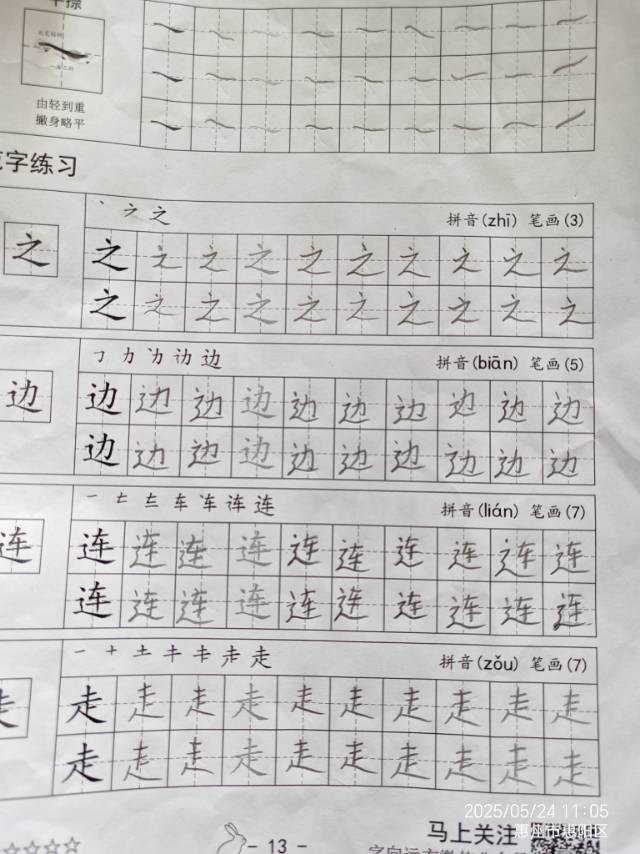 平捺
由轻到重
撇身略平
字练习
丶 ㇇ 之
拼音(zhī) 笔画(3)
之 之 之 之 之 之 之 之 之 之 之
之 之 之 之 之 之 之 之 之 之
㇆ 力 边 边 边
拼音(biān) 笔画(5)
边 边 边 边 边 边 边 边 边 边 边
边 边 边 边 边 边 边 边 边 边
拼音(lián) 笔画(7)
连 连 连 连 连 连 连 连 连 连 连
连 连 连 连 连 连 连 连 连 连
拼音(zǒu) 笔画(7)
走 走 走 走 走 走 走 走 走 走 走
走 走 走 走 走 走 走 走 走 走
2025/05/24 11:05
惠州市惠阳区
马上关注
- 13 -